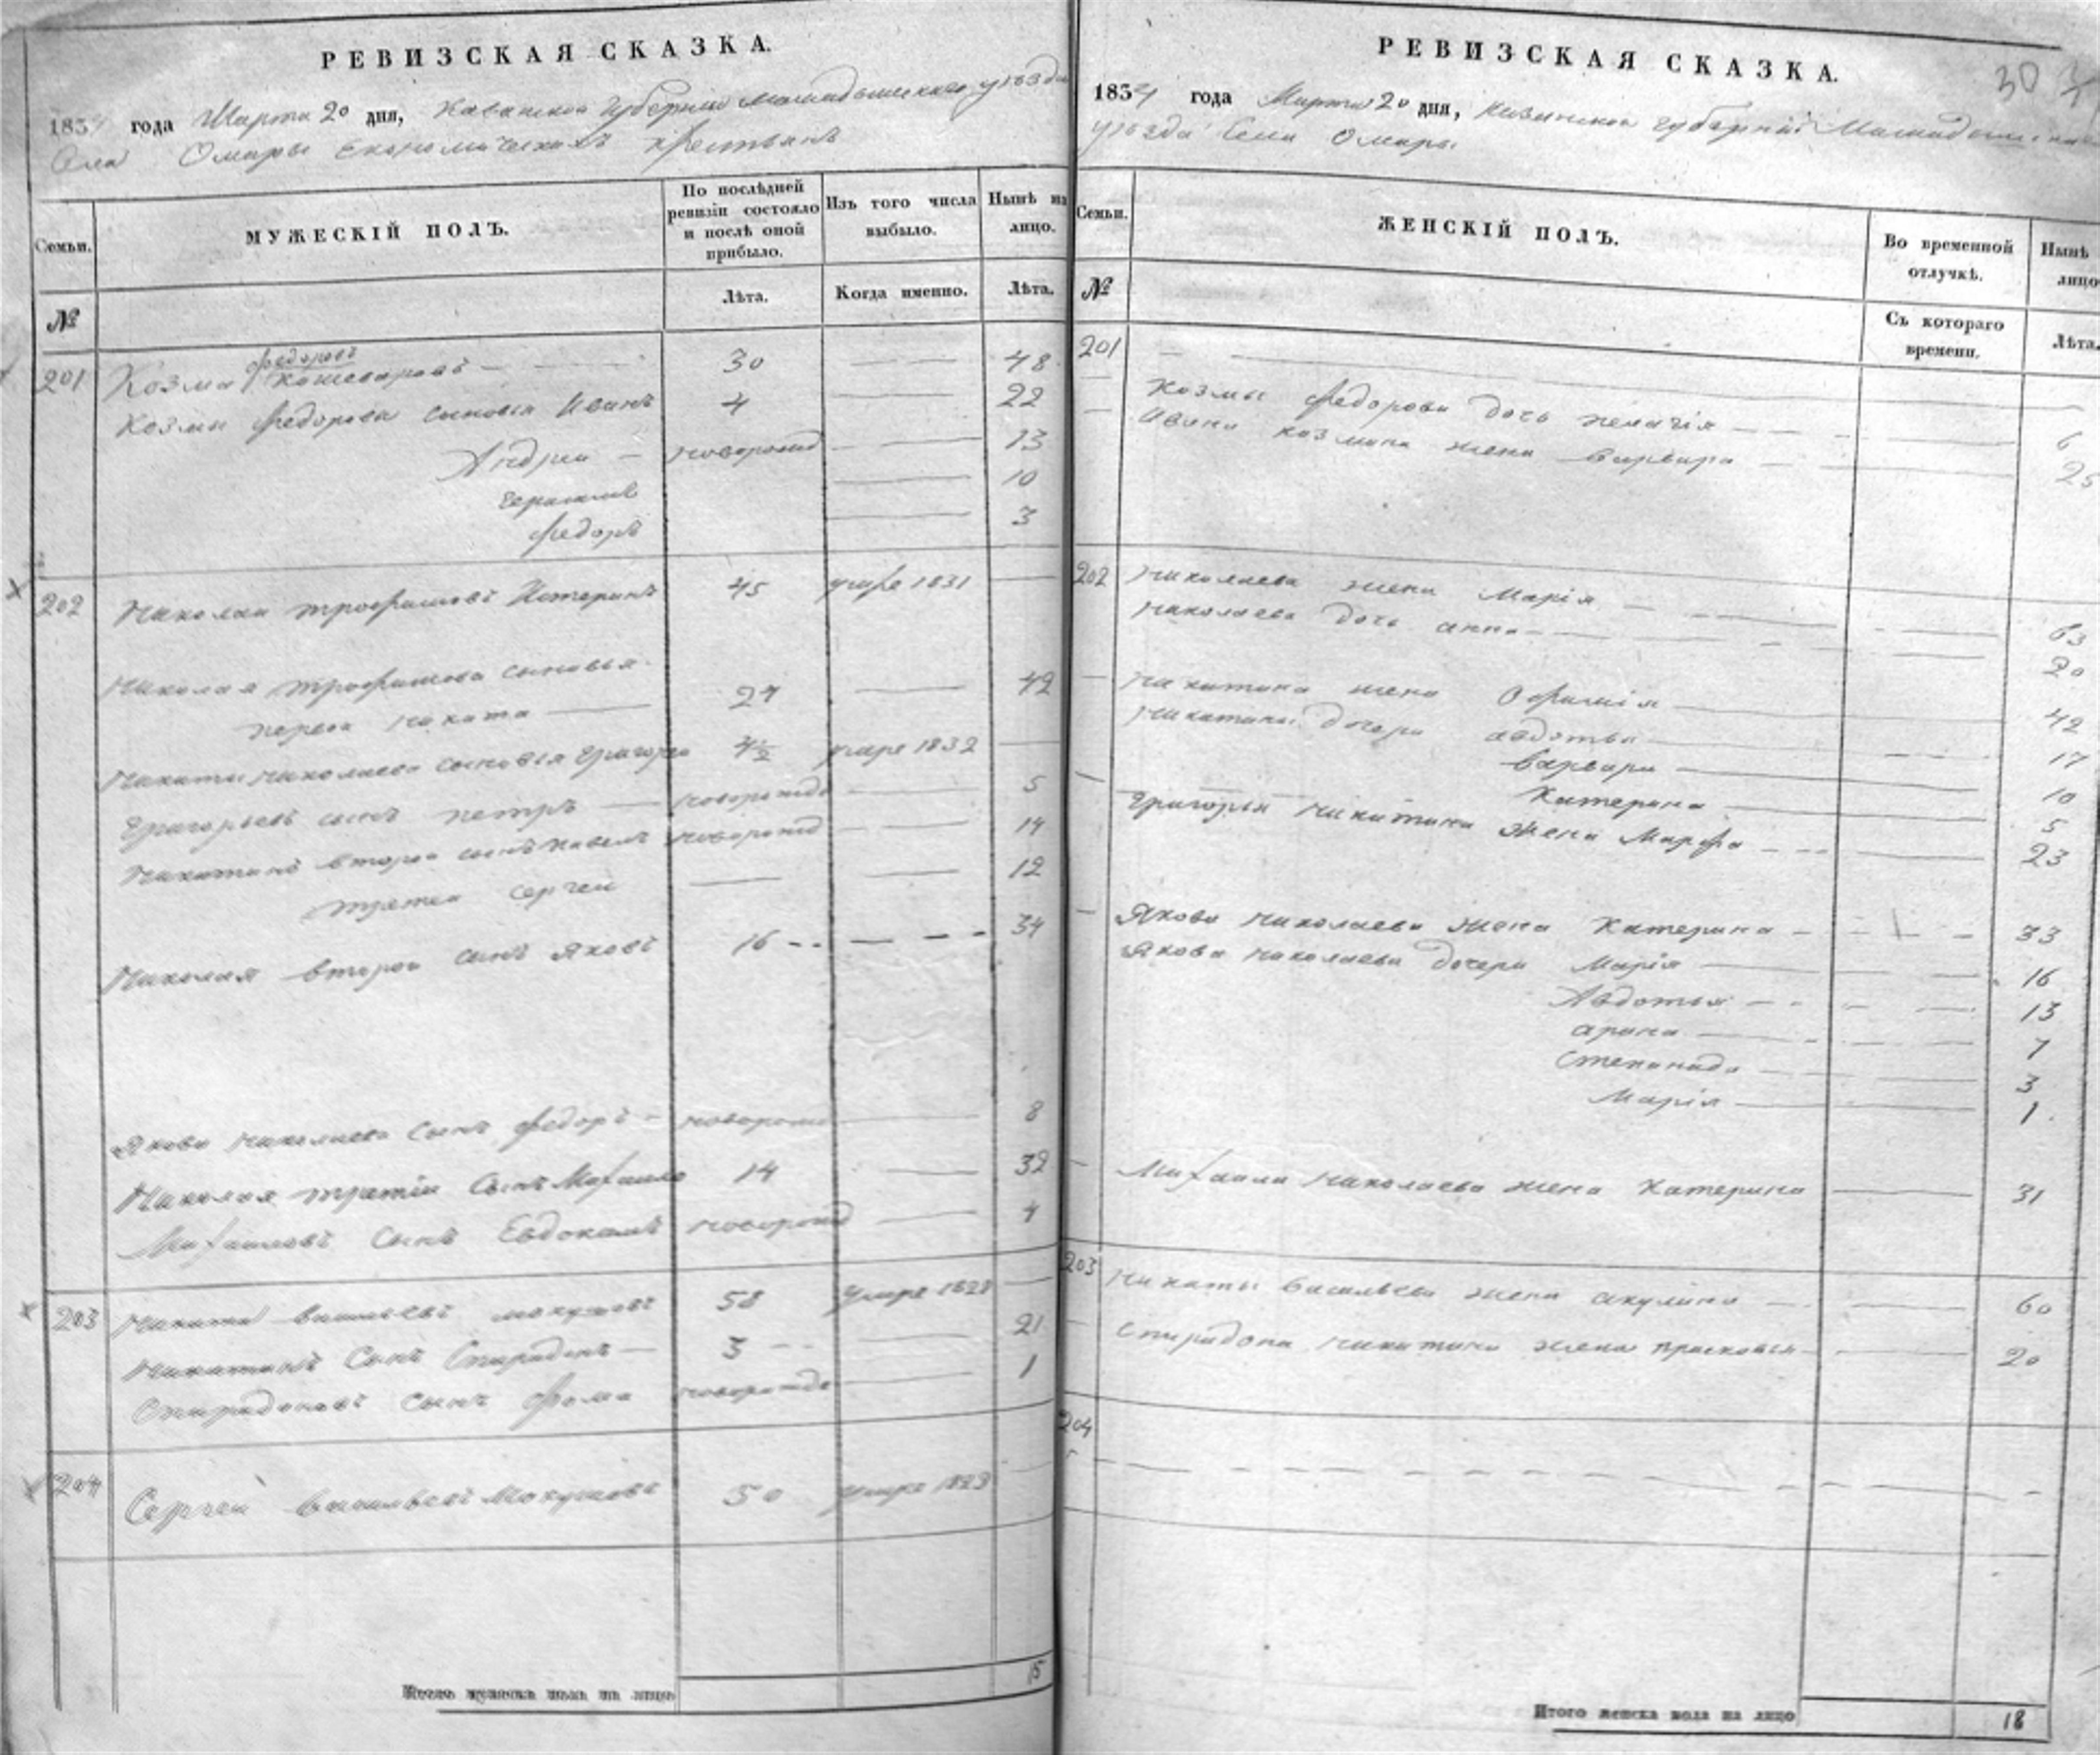 РЕВИЗСКАЯ СКАЗКА.
1834 года Марта 20 дня, Казанской губернии Мамадышскаго уезда
Села Омары Экономическихъ крестьянъ
Семьи.
МУЖЕСКІЙ ПОЛЪ.
По послѣдней ревизіи состояло и послѣ оной прибыло.
Изъ того числа выбыло.
Нынѣ на лицо.
№
Лѣта.
Когда именно.
Лѣта.
201 Козма Федоровъ Кошеваровъ 30 48
Козмы Федорова сыновья Иванъ 4 22
Андрей новорожд 13
Герасимъ 10
Федоръ 3
202 Николай Трофимовъ 45 умре 1831
Николая Трофимова сыновья
первой Никита 24 42
Никиты Николаева сыновья Григорей 4½ умре 1832
Григорьевъ сынъ Петръ новорожд 5
Никитинъ второй сынъ Павелъ новорожд 14
третей Сергей 12
Николая второй сынъ Яковъ 16 34
Якова Николаева сынъ Федоръ новорожд 8
Николая третій сынъ Михаило 14 32
Михаиловъ сынъ Евдокимъ новорожд 4
203 Никита Васильевъ 58 умре 1828
Никитинъ сынъ Спиридонъ 3 21
Спиридоновъ сынъ Фома новорожд 1
204 Сергей Васильевъ Мокушовъ 50 умре 1823
Итого мужеска пола на лицо 15
30
РЕВИЗСКАЯ СКАЗКА.
1834 года Марта 20 дня, Казанской губерніи Мамадышскаго
уезда Села Омары
Семьи.
ЖЕНСКІЙ ПОЛЪ.
Во временной отлучкѣ.
Нынѣ лицо
№
Съ котораго времени.
Лѣта.
201
Козмы Федорова дочь Пелагія 6
Ивана Козмина жена Варвара 25
202 Николаева жена Марія 63
Николаева дочь Анна 20
Никитина жена Офимія 42
Никитины дочери Авдотья 17
Варвара 10
Катерина 5
Григорья Никитина жена Марфа 23
Якова Николаева жена Катерина 33
Якова Николаева дочери Марія 16
Авдотья 13
Арина 7
Степанида 3
Марія 1
Михаила Николаева жена Катерина 31
203 Никиты Васильева жена Акулина 60
Спиридона Никитина жена Прасковья 20
204
Итого женска пола на лицо 18